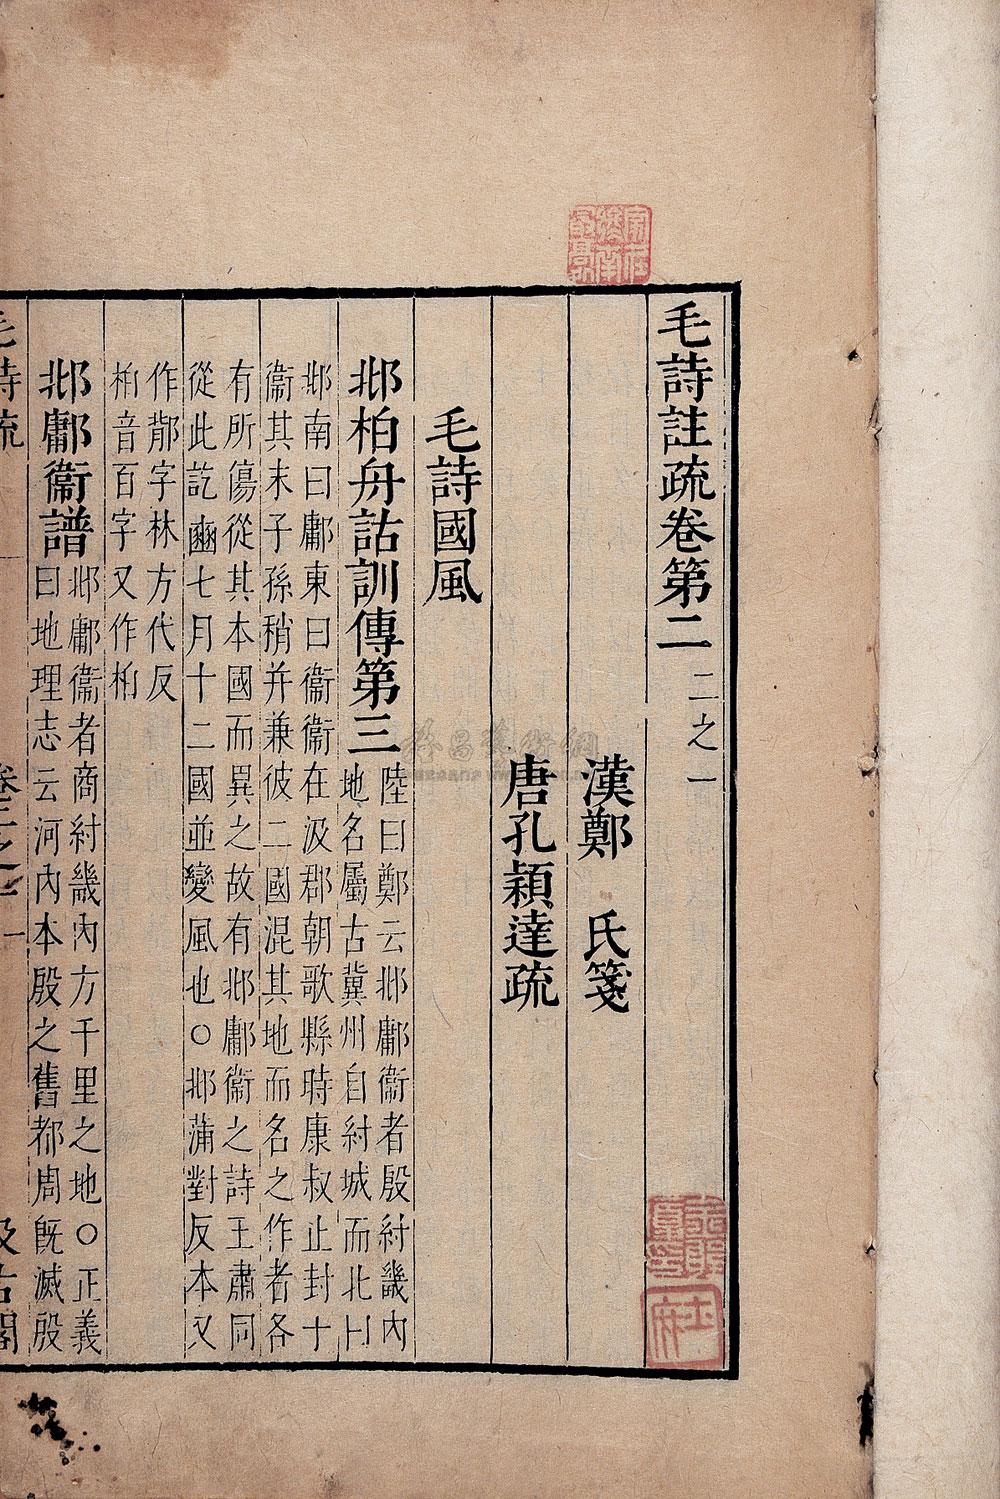 毛詩註疏卷第二 二之一
漢鄭 氏箋
唐孔穎達疏
毛詩國風
邶柏舟詁訓傳第三 陸曰鄭云邶鄘衞者殷紂畿內
地名屬古冀州自紂城而北曰
邶南曰鄘東曰衞衞在汲郡朝歌縣時康叔止封十
衞其末子孫稍并兼彼二國混其地而名之作者各
有所傷從其本國而異之故有邶鄘衞之詩王肅同
從此訖豳七月十二國並變風也○邶蒲對反本又
作鄁字林方代反
柏音百字又作栢
邶鄘衞譜 邶鄘衞者商紂畿內方千里之地○正義
曰地理志云河內本殷之舊都周旣滅殷
毛詩疏 卷二之一 一 汲古閣